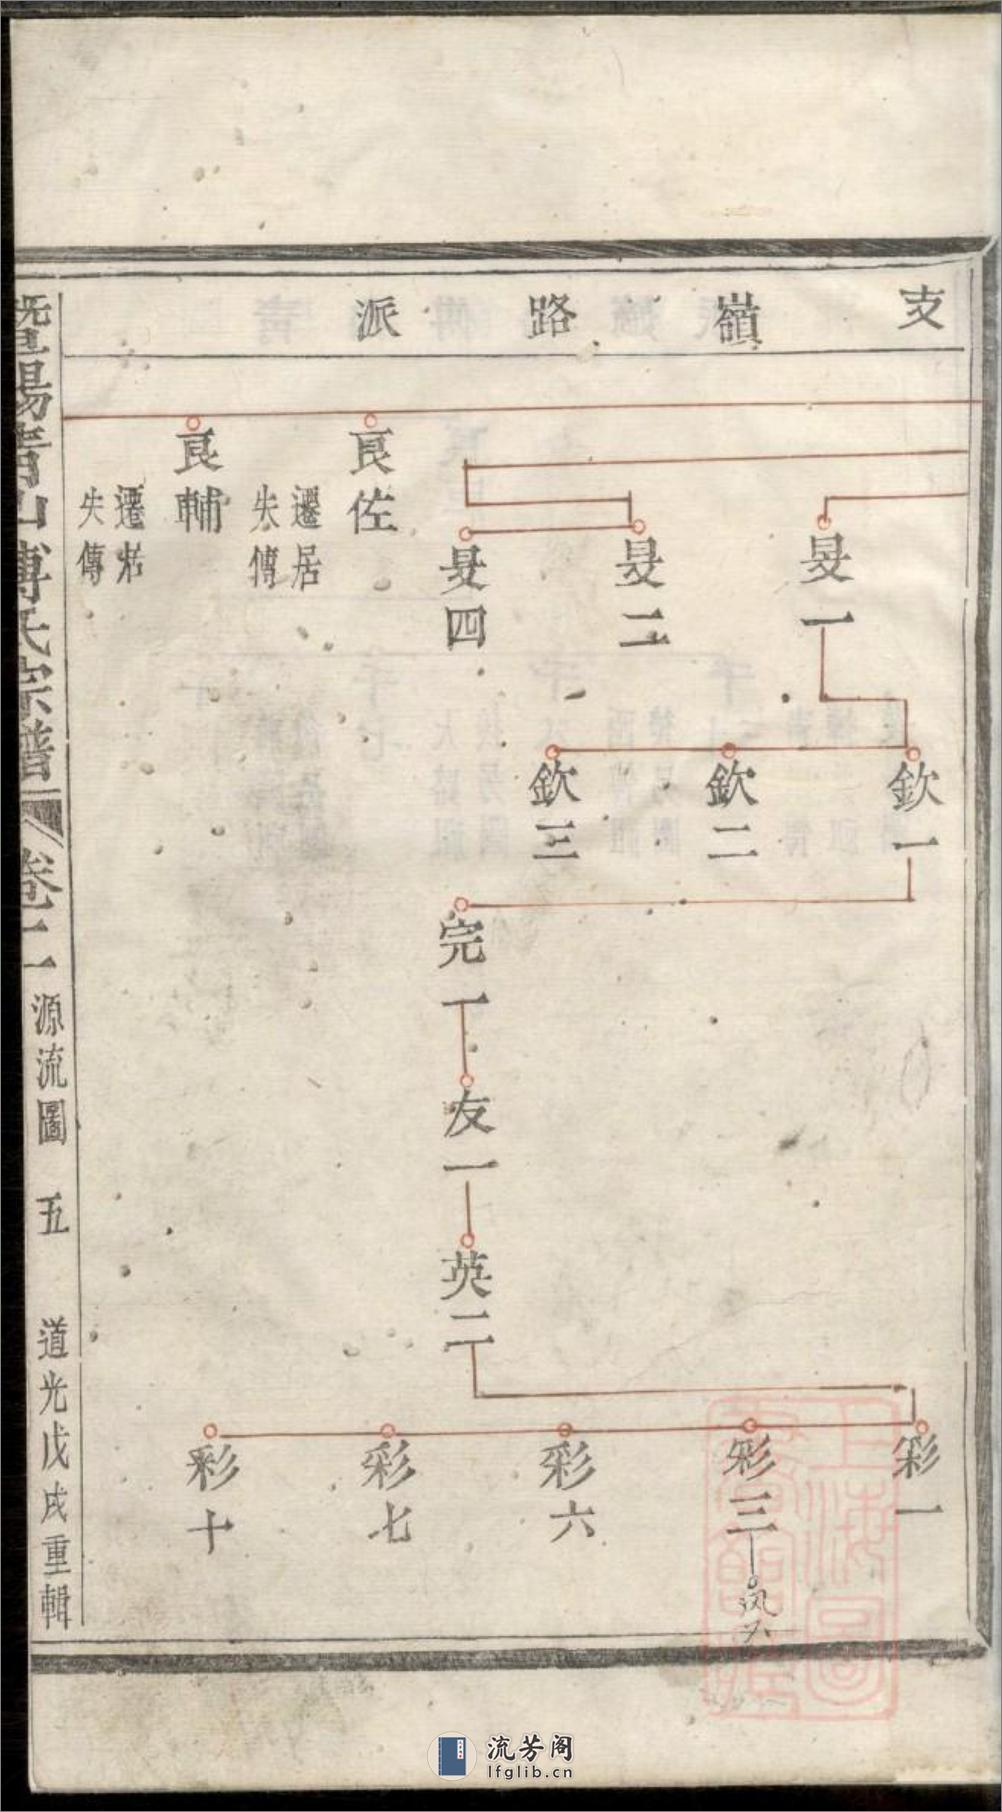 支嶺路派
旻一
旻二
旻四
良佐
遷居
失傳
良輔
遷
失傳
欽一
欽二
欽三
完一
友一
英二
彩一
彩三
彩六
彩七
彩十
暨陽青山傅氏宗譜
卷二
源流圖
五
道光戊戌重輯
上海圖書館藏
流芳阁
lfglib.cn